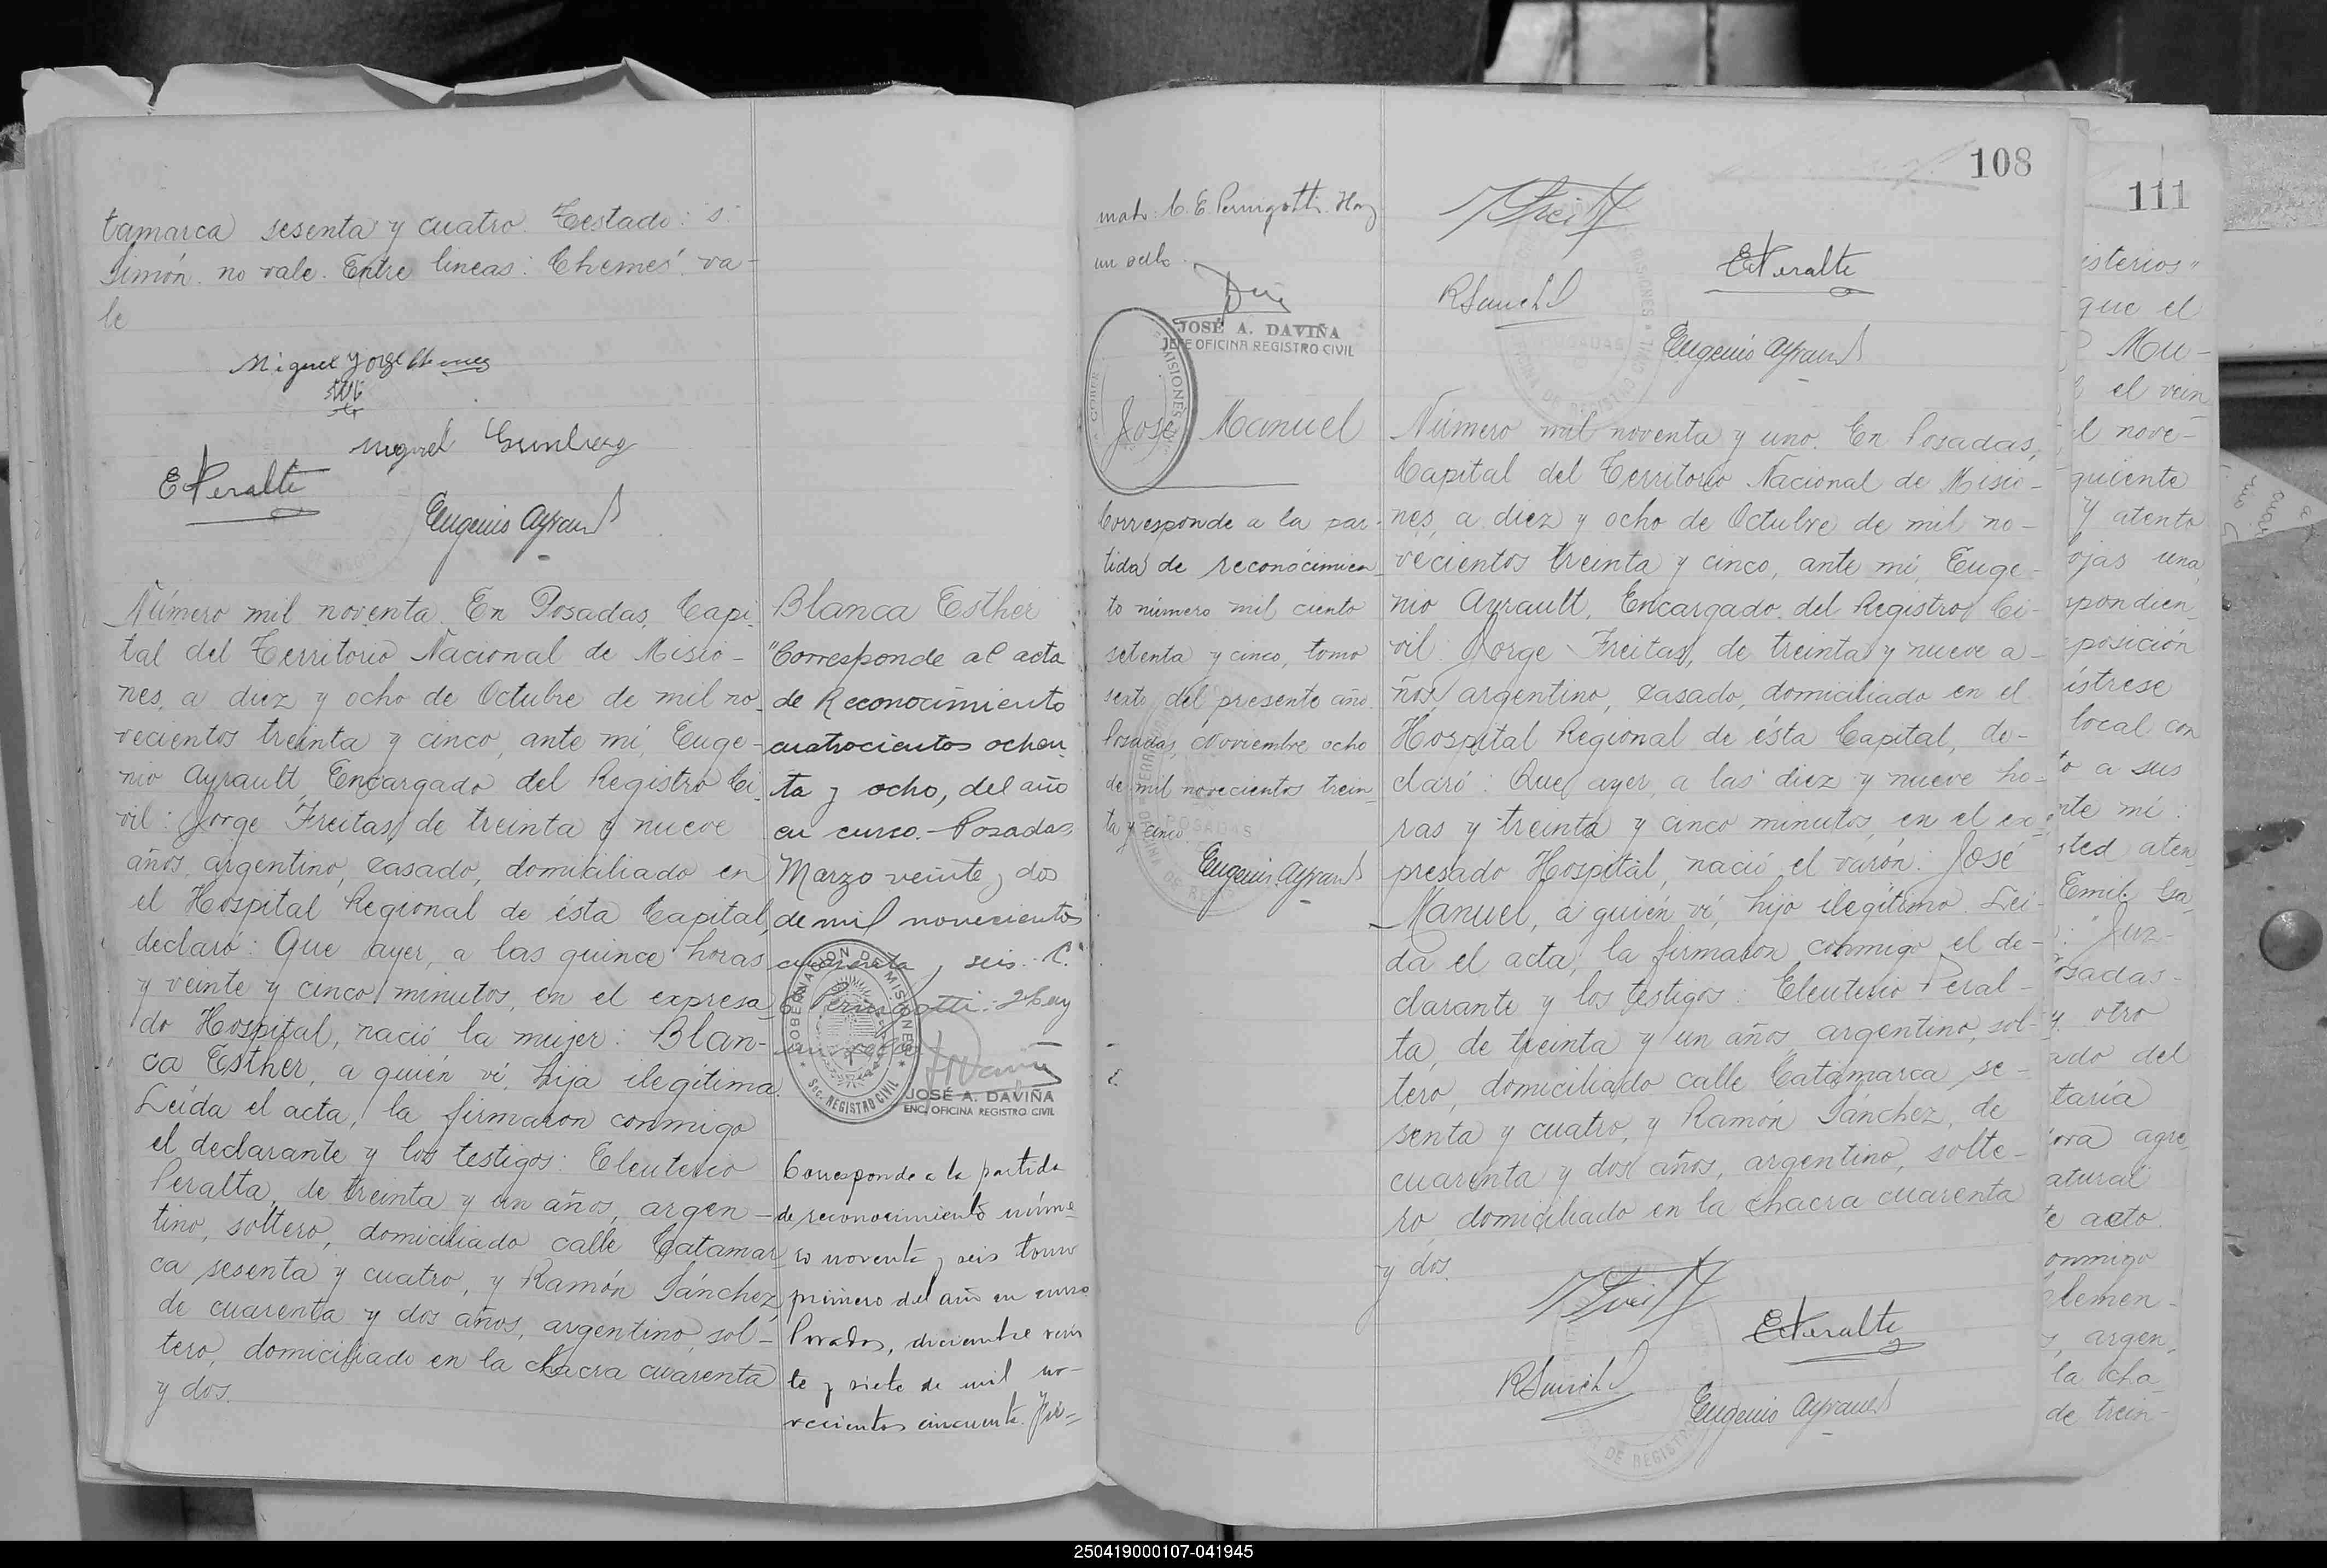 tamarca sesenta y cuatro. Testado: s.
simón. no vale. Entre lineas: Chemes. va-
le
Miguel Jorge Chemes
Miguel
E Peralta
Eugenio Ayrault
Número mil noventa. En Posadas, Capi-
tal del Territorio Nacional de Misio-
nes, a diez y ocho de Octubre de mil no-
vecientos treinta y cinco, ante mí, Euge-
nio Ayrault, Encargado del Registro Ci-
vil: Jorge Freitas, de treinta y nueve
años, argentino, casado, domiciliado en
el Hospital Regional de ésta Capital,
declaró: Que ayer, a las quince horas
y veinte y cinco minutos, en el expresa-
do Hospital, nació la mujer: Blan-
ca Esther, a quién ví, hija ilegítima.
Leída el acta, la firmaron conmigo
el declarante y los testigos: Eleuterio
Peralta, de treinta y un años, argen-
tino, soltero, domiciliado calle Catamar-
ca sesenta y cuatro, y Ramón Sánchez,
de cuarenta y dos años, argentino, sol-
tero, domiciliado en la chacra cuarenta
y dos.
Blanca Esther
"Corresponde al acta
de Reconocimiento
cuatrocientos ochen-
ta y ocho, del año
en curso.- Posadas
Marzo veinte y dos
de mil novecientos
cuarenta y seis. C.
E. Pernigotti: Hay
un sello
GOBERNACION DE MISIONES
Sec. REGISTRO CIVIL
JOSÉ A. DAVIÑA
ENC. OFICINA REGISTRO CIVIL
Corresponde a la partida
de reconocimiento núme-
ro noventa y seis tomo
primero del año en curso
Posadas, diciembre vein
te y siete de mil no-
vecientos cincuenta. Fir-
mado: C. E. Pernigotti. Hay
un sello.
JOSÉ A. DAVIÑA
JEFE OFICINA REGISTRO CIVIL
MISIONES
José Manuel
Corresponde a la par-
tida de reconocimien-
to número mil ciento
setenta y cinco, tomo
sexto del presente año.
Posadas, Noviembre ocho
de mil novecientos trein-
ta y cinco.
Eugenio Ayrault
108
E Peralta
R Sánchez
Eugenio Ayrault
Número mil noventa y uno. En Posadas,
Capital del Territorio Nacional de Misio-
nes, a diez y ocho de Octubre de mil no-
vecientos treinta y cinco, ante mí, Euge-
nio Ayrault, Encargado del Registro Ci-
vil: Jorge Freitas, de treinta y nueve a-
ños, argentino, casado, domiciliado en el
Hospital Regional de ésta Capital, de-
claró: Que ayer, a las diez y nueve ho-
ras y treinta y cinco minutos, en el ex-
presado Hospital, nació el varón: José
Manuel, a quién ví, hijo ilegítimo. Leí-
da el acta, la firmaron conmigo el de-
clarante y los testigos: Eleuterio Peral-
ta, de treinta y un años, argentino, sol-
tero, domiciliado calle Catamarca se-
senta y cuatro, y Ramón Sánchez, de
cuarenta y dos años, argentino, solte-
ro, domiciliado en la chacra cuarenta
y dos.
E Peralta
R Sánchez
Eugenio Ayrault
111
isterios"
que el
Mu-
el vein
l nove-
quiente
y atento
ojas una
spondien
posición
ístrese
local con
to a sus
nte mí:
sted aten
Emil Ga
: "Juz-
osadas-
y otro
ado del
taría
ora agre
atural
te acto.
onmigo
lemen-
s, argen,
la cha
de trein-
250419000107-041945